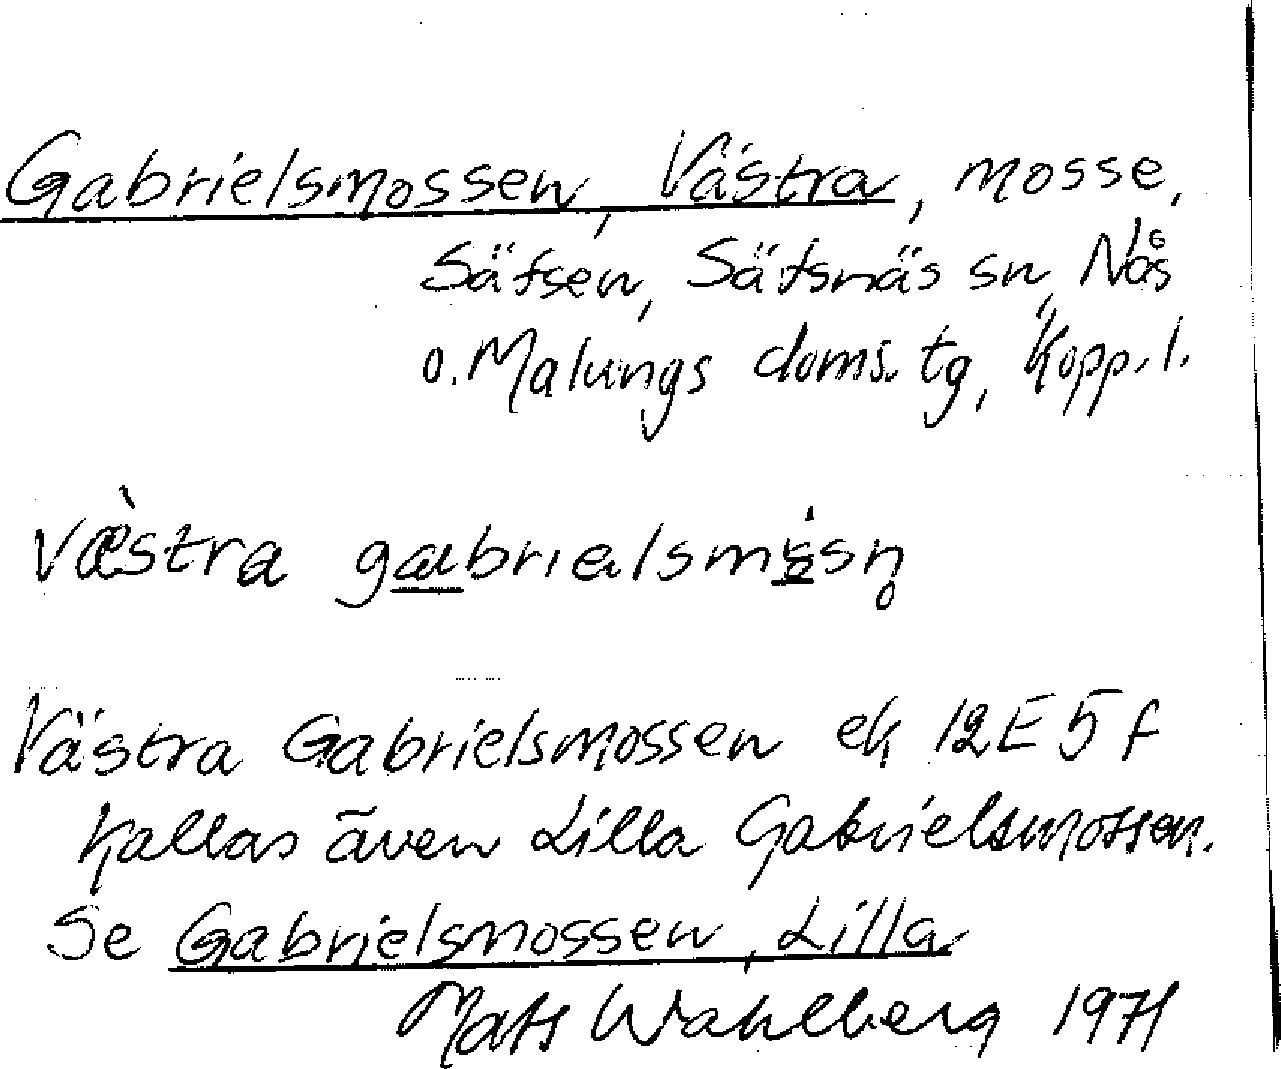 Gabrielsmossen, Västra, mosse,
Säfsen, Säfsnäs sn, Nås
o. Malungs doms. tg, Kopp. l.
Västra Gabrielsmossen ek 12E 5f
kallas även Lilla Gabrielsmossen.
Se Gabrielsmossen, Lilla
Mats Wahlberg 1971